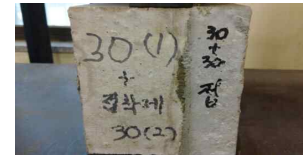 30(1)
+
접착제
30(2)
30
+
30
접